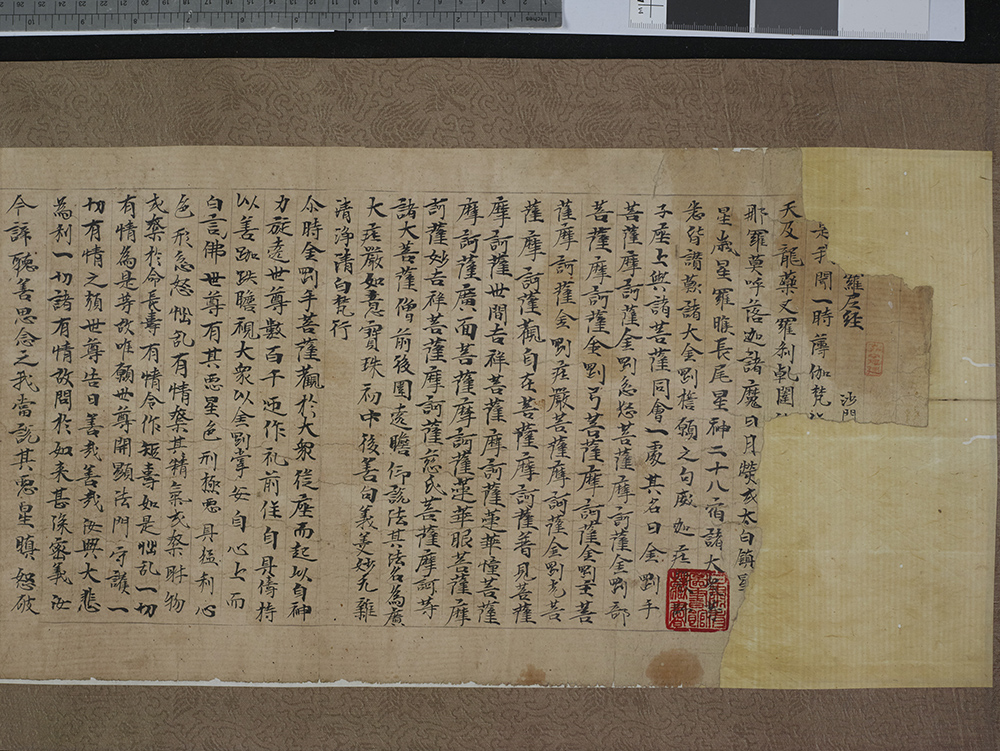 羅尼経 沙門
是我聞一時薄伽梵
天及龍藥叉羅刹乹闥
那羅莫呼落迦諸魔日月熒或太白鎮星
星歲星羅睺長尾星神二十八宿諸大
悉皆讚歎諸大金剛擔願之句處加庄
子座上與諸菩薩同會一處其名曰金剛手
菩薩摩訶薩金剛忿怒菩薩摩訶薩金剛部
菩薩摩訶薩金剛弓菩薩摩訶薩金剛主菩
薩摩訶薩金剛庄嚴菩薩摩訶薩金剛光菩
薩摩訶薩觀自在菩薩摩訶薩普見菩薩
摩訶薩世間吉祥菩薩摩訶薩蓮華幢菩薩
摩訶薩廣面菩薩摩訶薩蓮華眼菩薩摩
訶薩妙吉祥菩薩摩訶薩慈氏菩薩摩訶等
諸大菩薩僧前後圍遶瞻仰説法其法名為廣
大庄嚴如意寶珠初中後善句義美妙无雜
清浄清白梵行
尒時金剛手菩薩觀於大衆從座而起以自神
力旋遶世尊數百千迊作礼前住自具倚持
以善跏趺瞻視大衆以金剛掌安自心上而
白言佛世尊有其悪星色刑極悪具猛利心
色形忿怒惱乱有情㮈其精氣或㮈財物
或㮈於命長壽有情令作短壽如是惱乱一切
有情為是等故唯願世尊開顯法門守護一
切有情之類世尊告曰善哉善哉汝興大悲
為利一切諸有情故問於如来甚深密義汝
今諦聽善思念之我當説其悪星瞋怒破